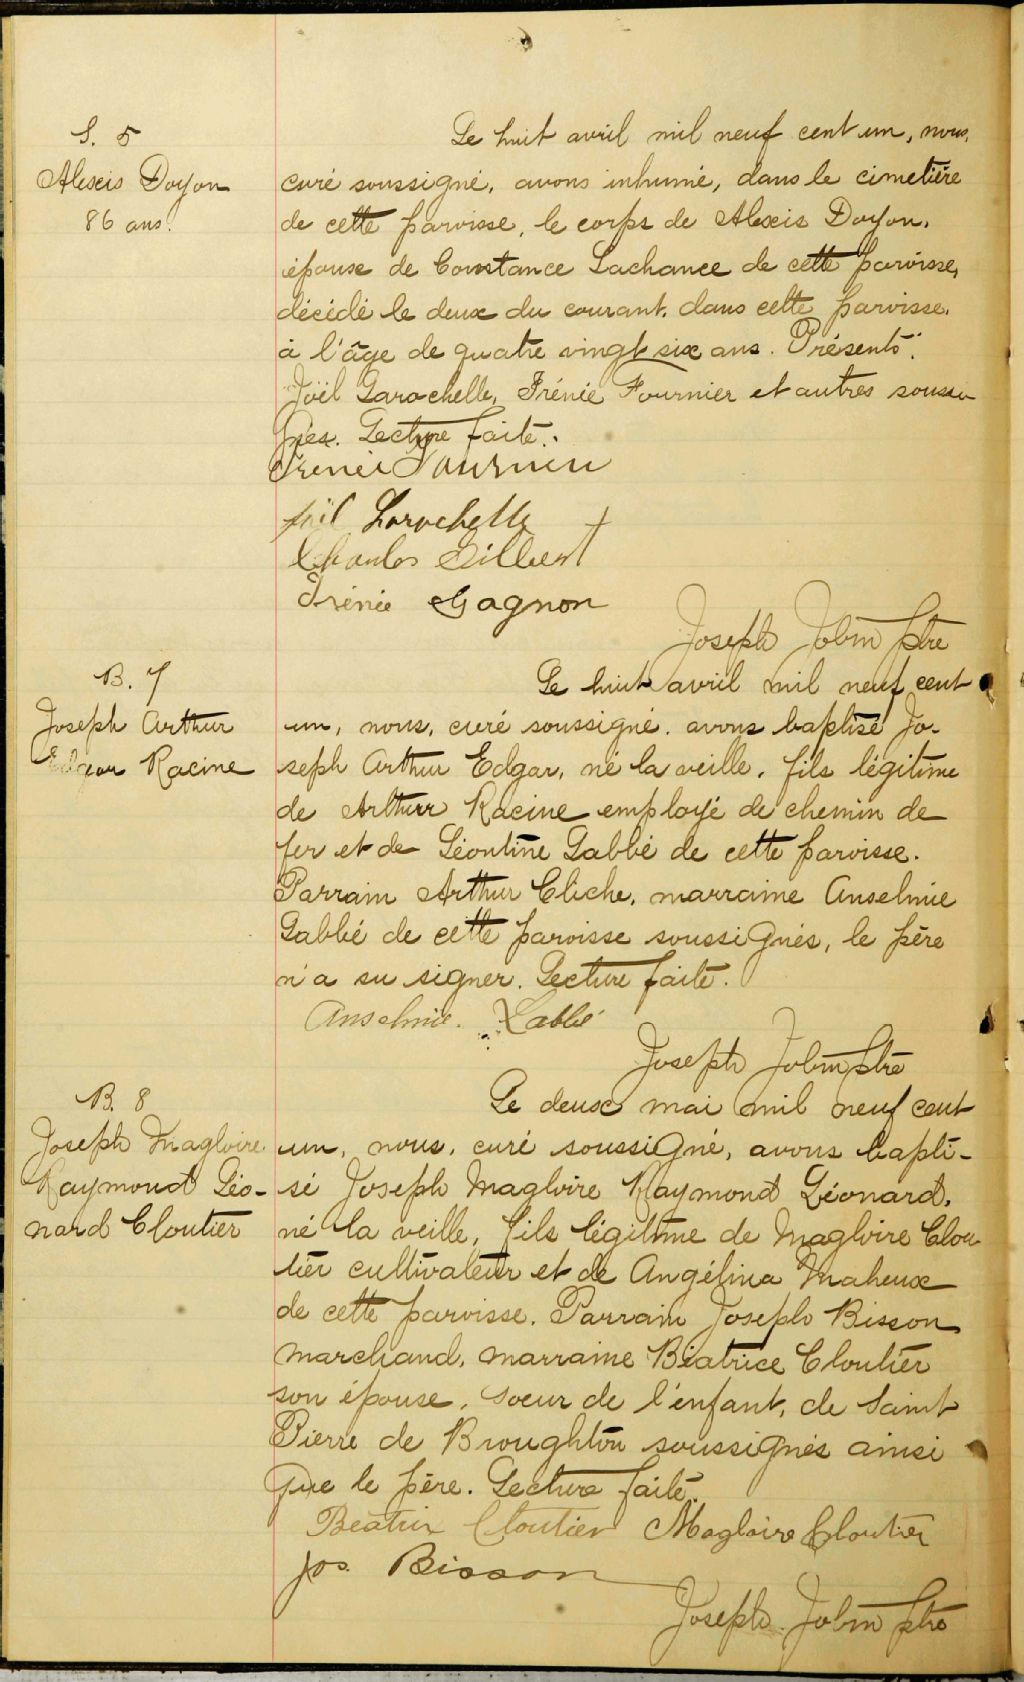 S. 5
Alexis Doyon
86 ans.
Le huit avril mil neuf cent un, nous,
curé soussigné, avons inhumé, dans le cimetière
de cette paroisse, le corps de Alexis Doyon,
époux de Constance Lachance de cette paroisse,
décédé le deux du courant, dans cette paroisse,
à l'âge de quatre vingt six ans. Présents:
Joël Larochelle, Irénée Fournier et autres soussi
gnés. Lecture faite.
Irénée Fournier
Joël Larochelle
Charles Gilbert
Irénée Gagnon
Joseph Jobin ptre
B. 7
Joseph Arthur
Edgar Racine
Le huit avril mil neuf cent
un, nous, curé soussigné, avons baptisé Jo-
seph Arthur Edgar, né la veille, fils légitime
de Arthur Racine employé de chemin de
fer et de Léontine Labbé de cette paroisse.
Parrain Arthur Cliche, marraine Anselmie
Labbé de cette paroisse soussignés, le père
n'a su signer. Lecture faite.
Anselmie Labbé
Joseph Jobin ptre
B. 8
Joseph Magloire
Raymond Léo-
nard Cloutier
Le deux mai mil neuf cent
un, nous, curé soussigné, avons bapti-
sé Joseph Magloire Raymond Léonard,
né la veille, fils légitime de Magloire Clou-
tier cultivateur et de Angélina Maheux
de cette paroisse. Parrain Joseph Bisson
marchand, marraine Béatrice Cloutier
son épouse, soeur de l'enfant, de Saint
Pierre de Broughton soussignés ainsi
que le père. Lecture faite.
Béatrix Cloutier Magloire Cloutier
Jos. Bisson
Joseph Jobin ptre